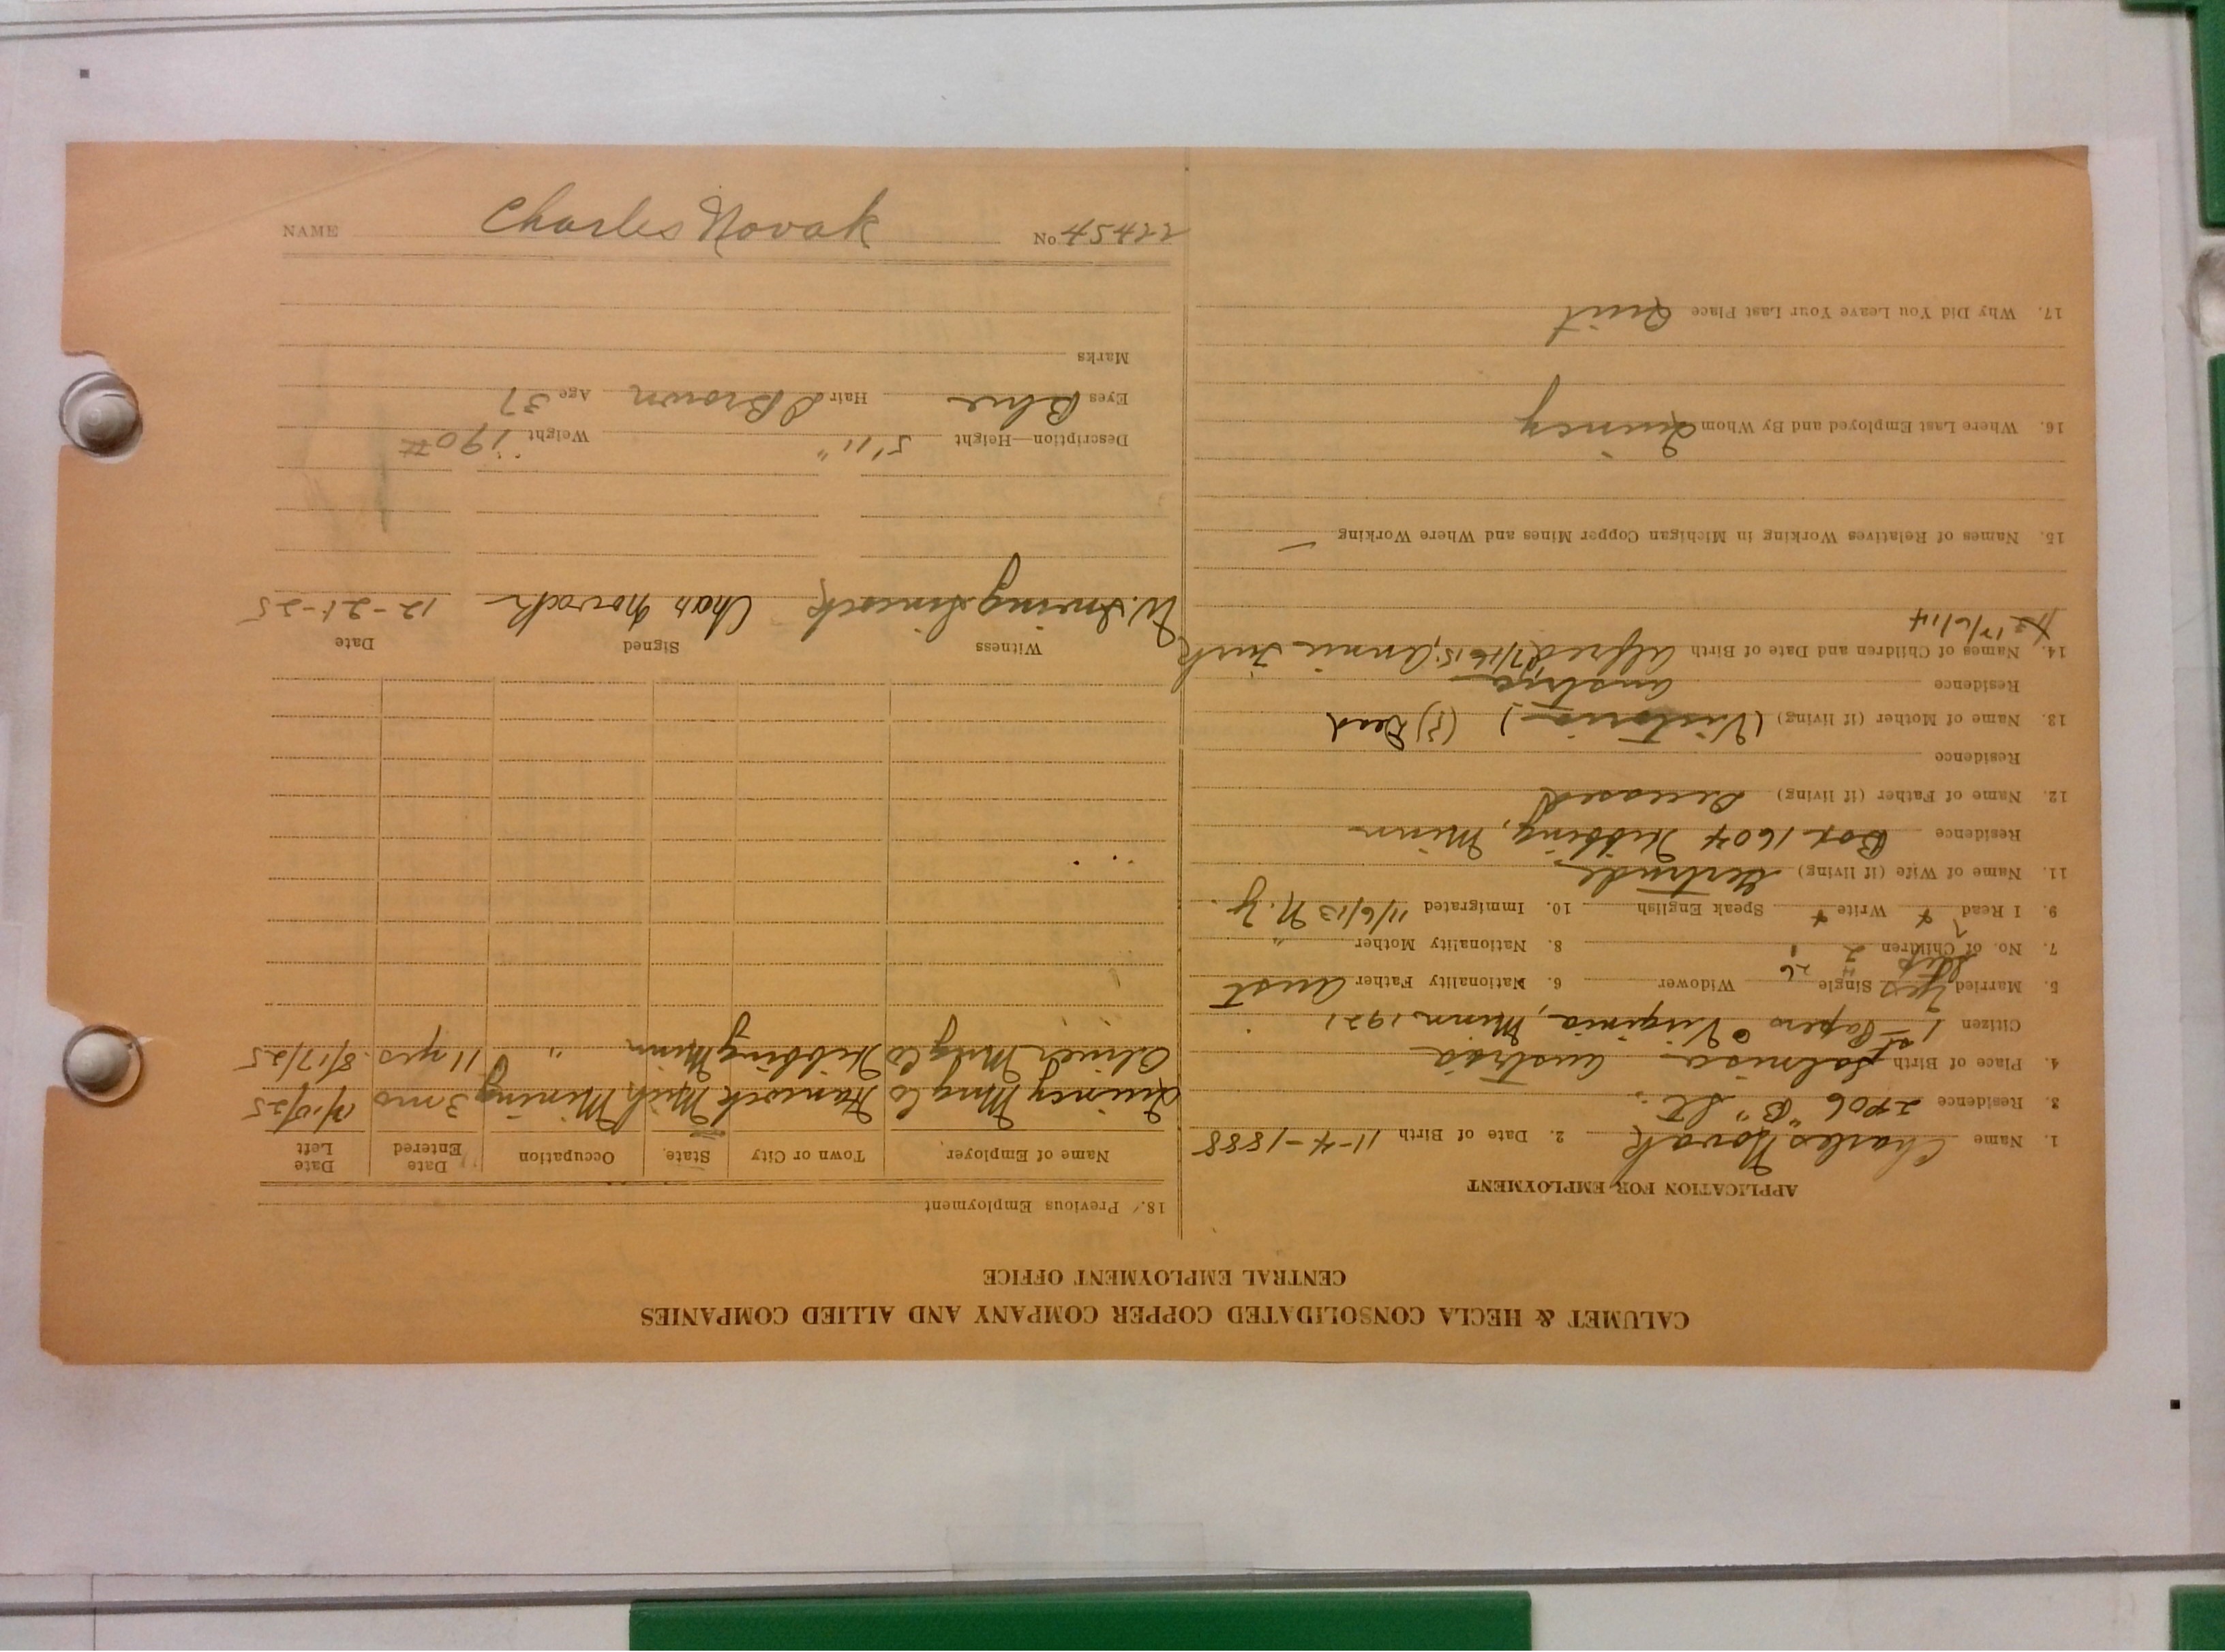 NAME Charles Novak No 45422
CALUMET & HECLA CONSOLIDATED COPPER COMPANY AND ALLIED COMPANIES
CENTRAL EMPLOYMENT OFFICE
APPLICATION FOR EMPLOYMENT
1. Name Charles Novak 2. Date of Birth 11-4-1888
3. Residence 2406 "B" St.
4. Place of Birth Austria
Citizen 1st Papers Virginia, Minn 1921
5. Married Yes Single Widower 6. Nationality Father Aust
Step
7. No. of Children 2 8. Nationality Mother "
9. I Read + Write + Speak English 10. Immigrated 11/6/13 N.Y.
11. Name of Wife (if living) Gertrude
Residence Box 1604 Hibbing, Minn
12. Name of Father (if living) Deceased
Residence
13. Name of Mother (if living) (Victoria) (?) Dead
Residence Austria
14. Names of Children and Date of Birth Alfred 7/16/15, Annie Turk
12/6/14
15. Names of Relatives Working in Michigan Copper Mines and Where Working —
16. Where Last Employed and By Whom Quincy
17. Why Did You Leave Your Last Place Quit
18. Previous Employment
Name of Employer Town or City State Occupation Date Entered Date Left
Quincy Mng Co Hancock Mich Mining 3 mo
Oliver Mng Co Hibbing Minn " 11 yrs 8/17/25
Witness Signed Date
W. Irving Simcock Chas Novack 12-21-25
Description—Height 5' 11" Weight 190#
Eyes Blue Hair D Brown Age 37
Marks